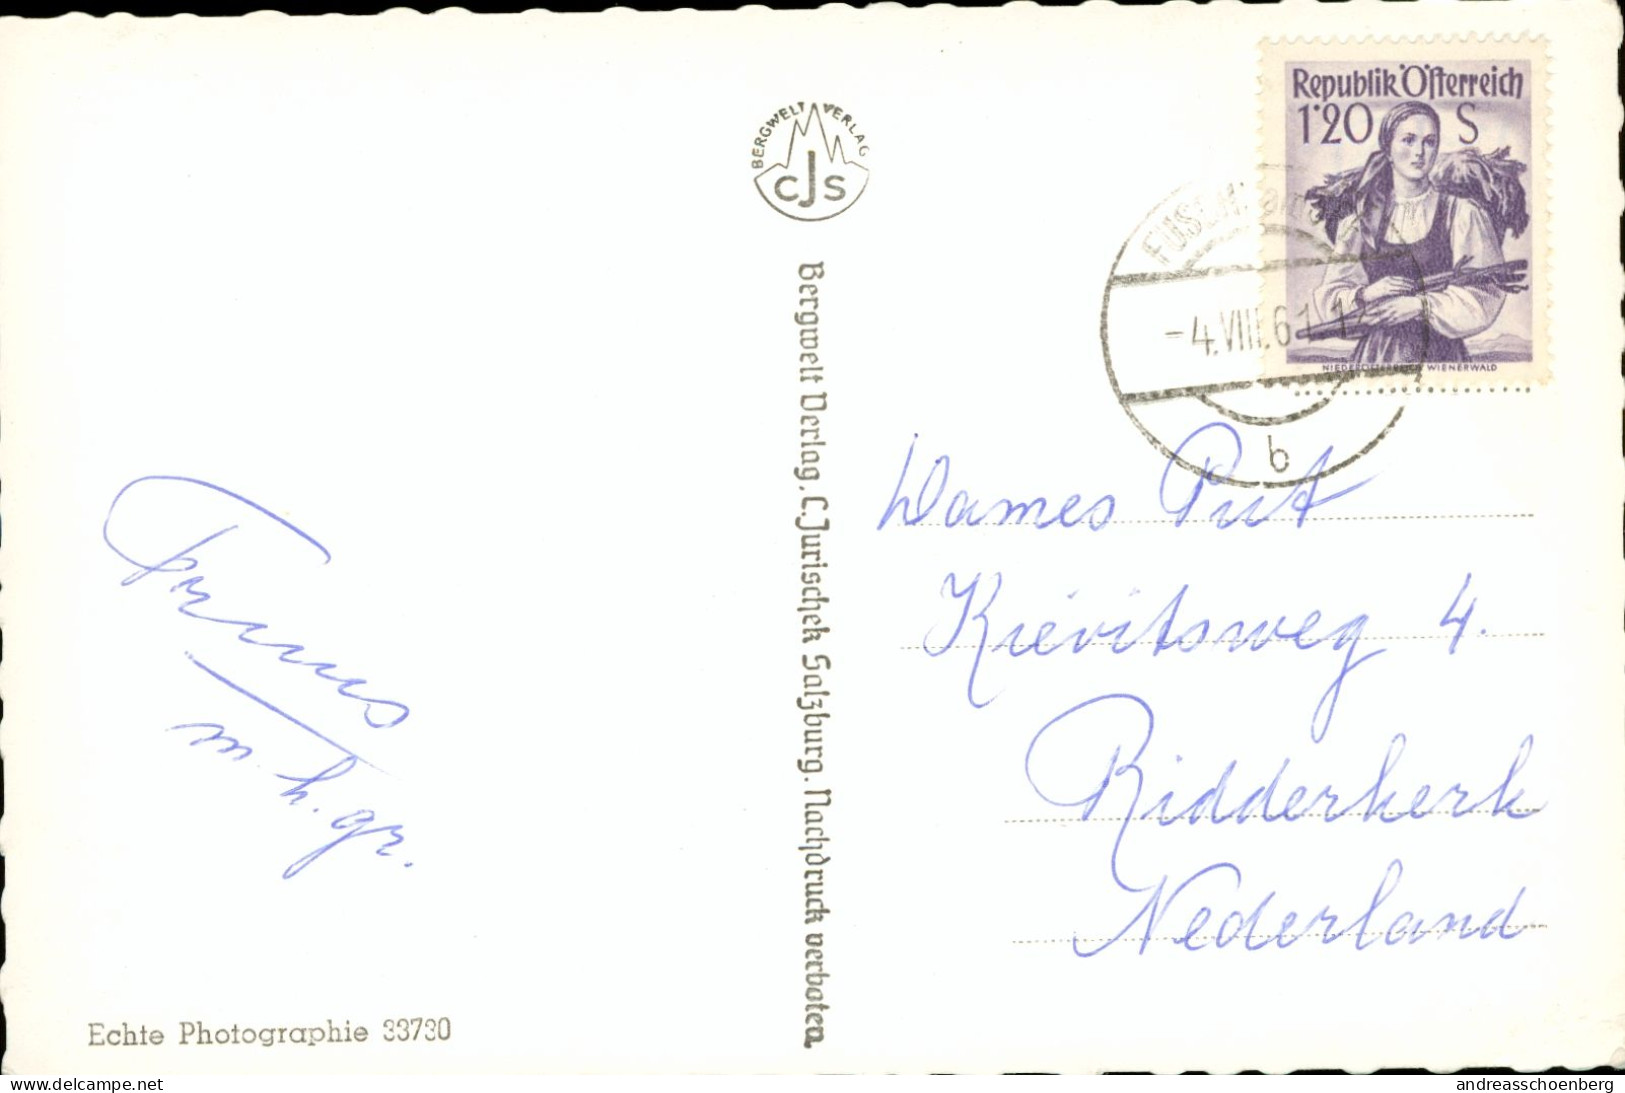 BERGWELT VERLAG
CJS
Republik Österreich
1'20 S
NIEDERÖSTERREICH, WIENERWALD
-4.VIII.61
b
Bergwelt Verlag, C. Jurischek Salzburg. Nachdruck verboten.
Dames Put
Kievitsweg 4.
Ridderkerk
Nederland
m. h. gr.
Echte Photographie 33730
delcampe.net
andreasschoenberg